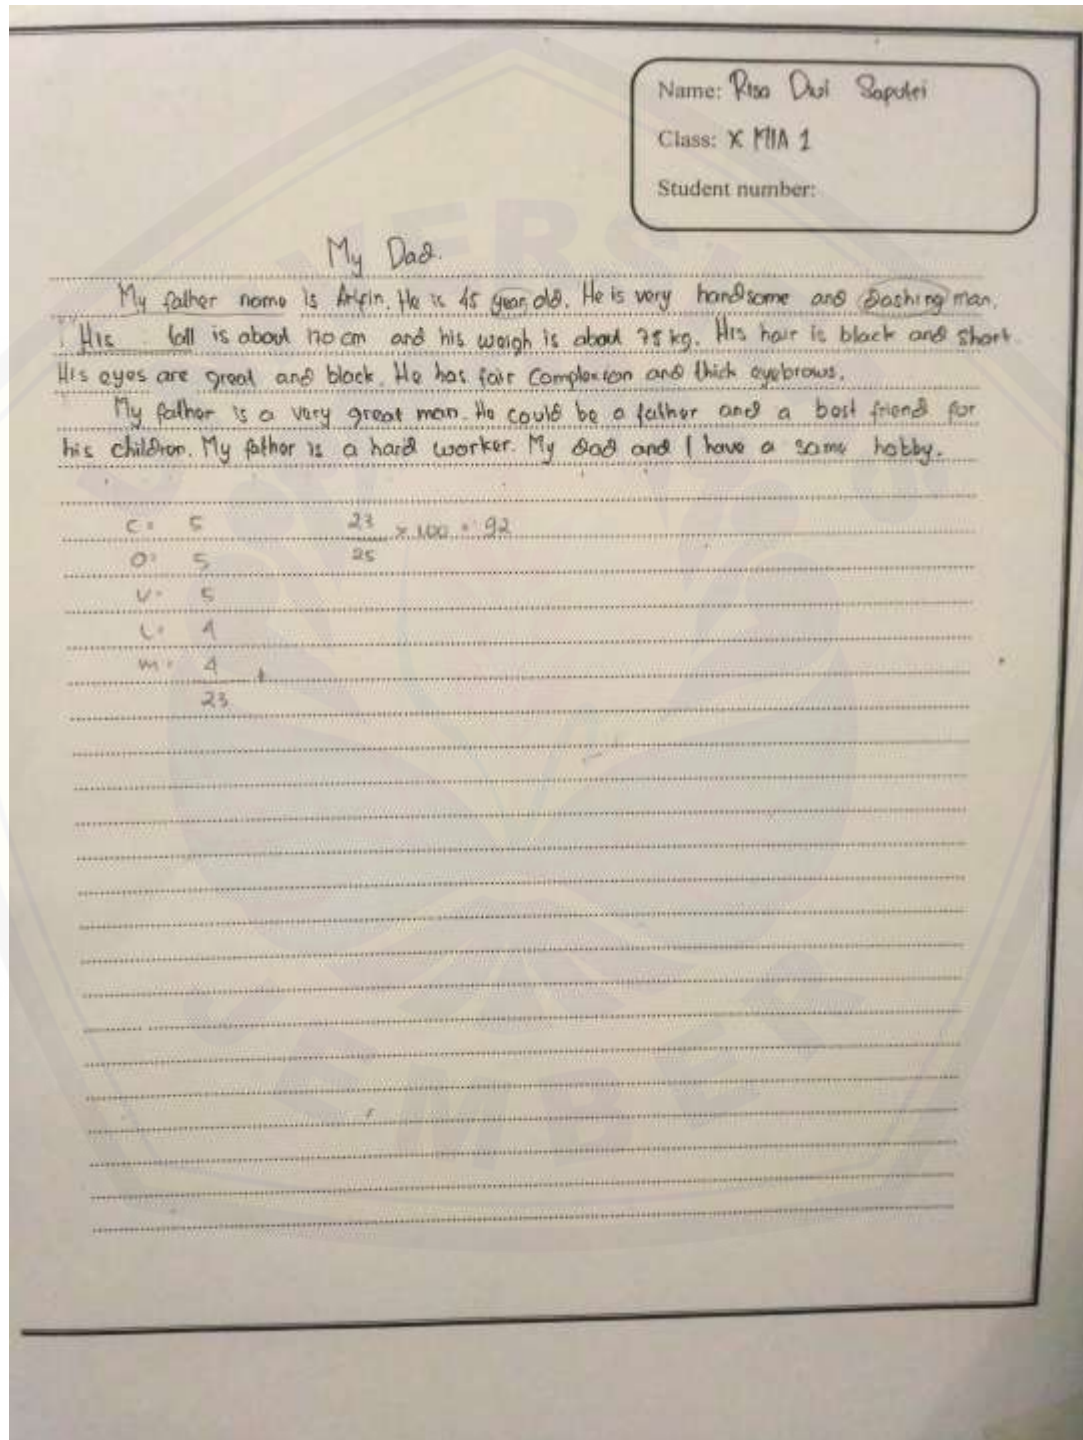 Name: Risa Dwi Saputri
Class: X MIA 1
Student number:
My Dad.
My father name is Arifin. He is 45 year old. He is very handsome and Dashing man.
His tall is about 170 cm and his weigh is about 75 kg. His hair is black and short.
His eyes are great and black. He has fair complexion and thick eyebrows.
My father is a very great man. He could be a father and a best friend for
his children. My father is a hard worker. My dad and I have a same hobby.
C = 5
23
25
× 100 = 92
O = 5
V = 5
L = 4
m = 4 +
23